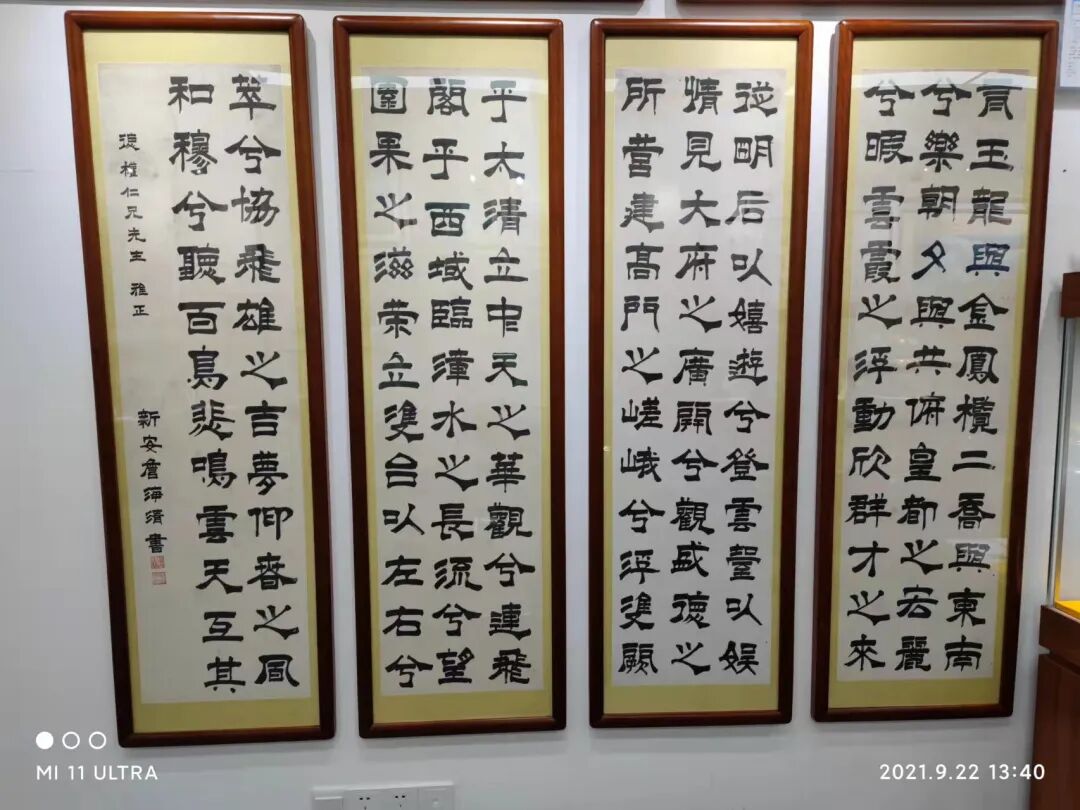 有玉龍與金鳳攬二喬與東南
兮樂朝夕與共俯皇都之宏麗
兮暇雲霞之浮動欣群才之來
從明后以嬉遊兮登雲臺以娛
情見大府之廣開兮觀盛德之
所營建高門之嵯峨兮浮雙闕
乎太清立中天之華觀兮連飛
閣乎西域臨漳水之長流兮望
園果之滋榮立雙台以左右兮
萃兮協飛雄之吉夢仰春之風
和穆兮聽百鳥悲鳴雲天互其
仁兄先生 雅正
新安詹海清書
MI 11 ULTRA
2021.9.22 13:40